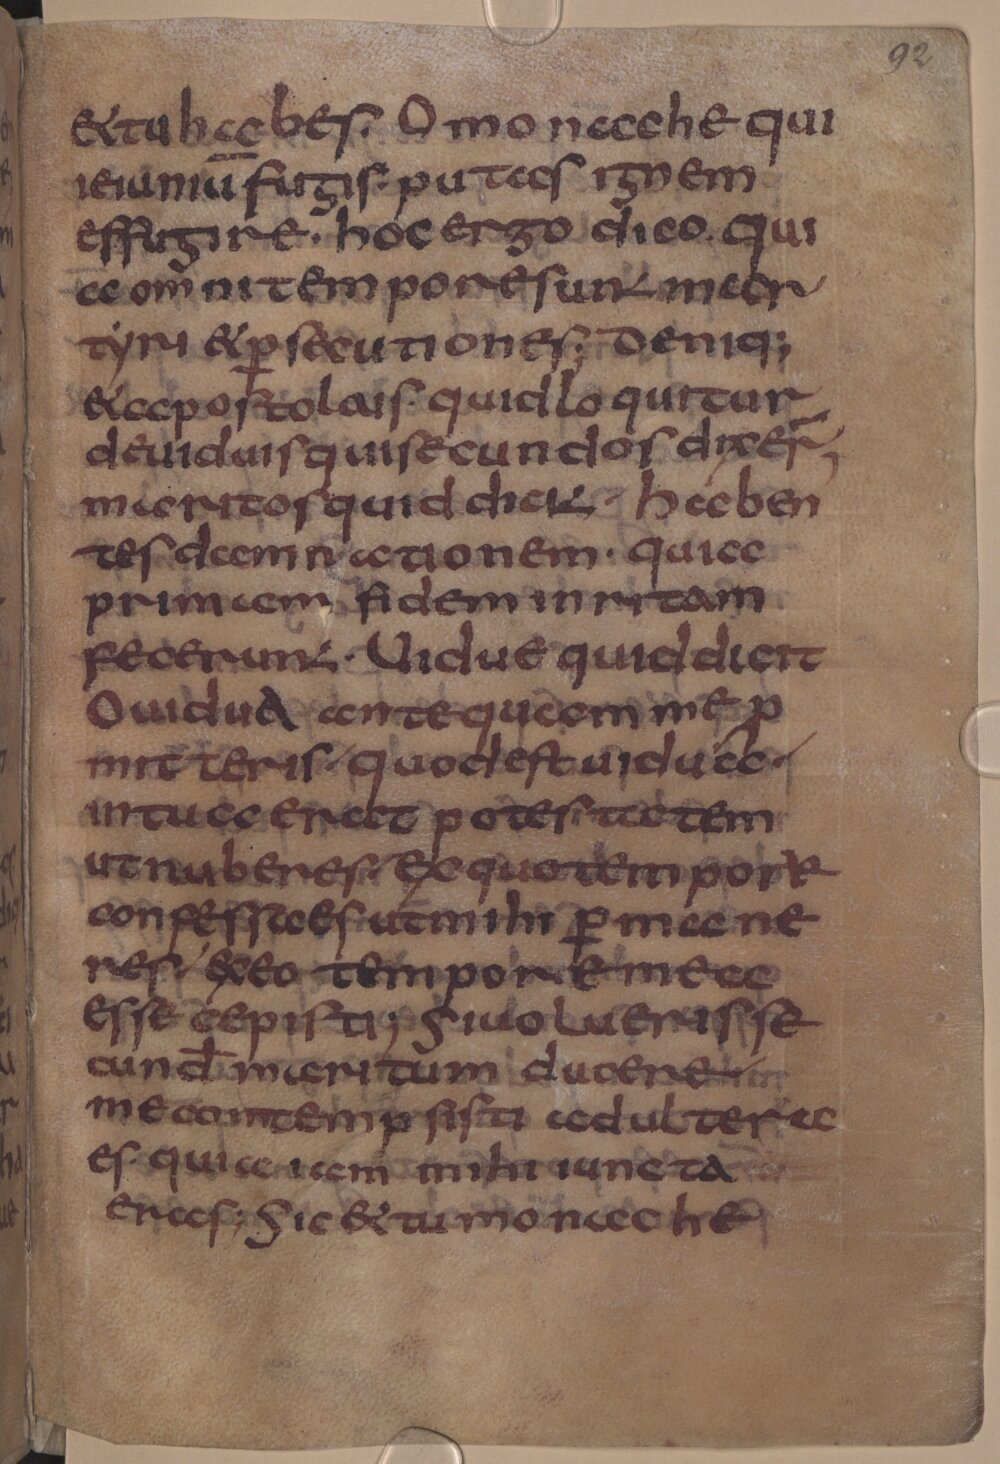 92
&tu habes. O monache qui
ieiuniū fugis. putas ignem
effugire. hoc ergo dico. qui
a om̄i tempore sunt mar
tyri & p̱secutiones; Deniq;
& apostolus. quid loquitur
de uiduis qui secundos dixer̄
maritos quid dicit. haben
tes damnationem. quia
primam fidem inritam
fecerunt. Uidue quid dicit
O uidua antequam me p
mitteris. quod est uidua.
in tua erat potestatem
ut nuberes. Ex quo tempore
confessa es ut mihi p̱mane
res. ex eo tempore mea
esse cepisti; Si uolueris se
cund̄ maritum ducere
me contempsisti adultera
es. quia iam mihi iuncta
eras; Sic & tu monache